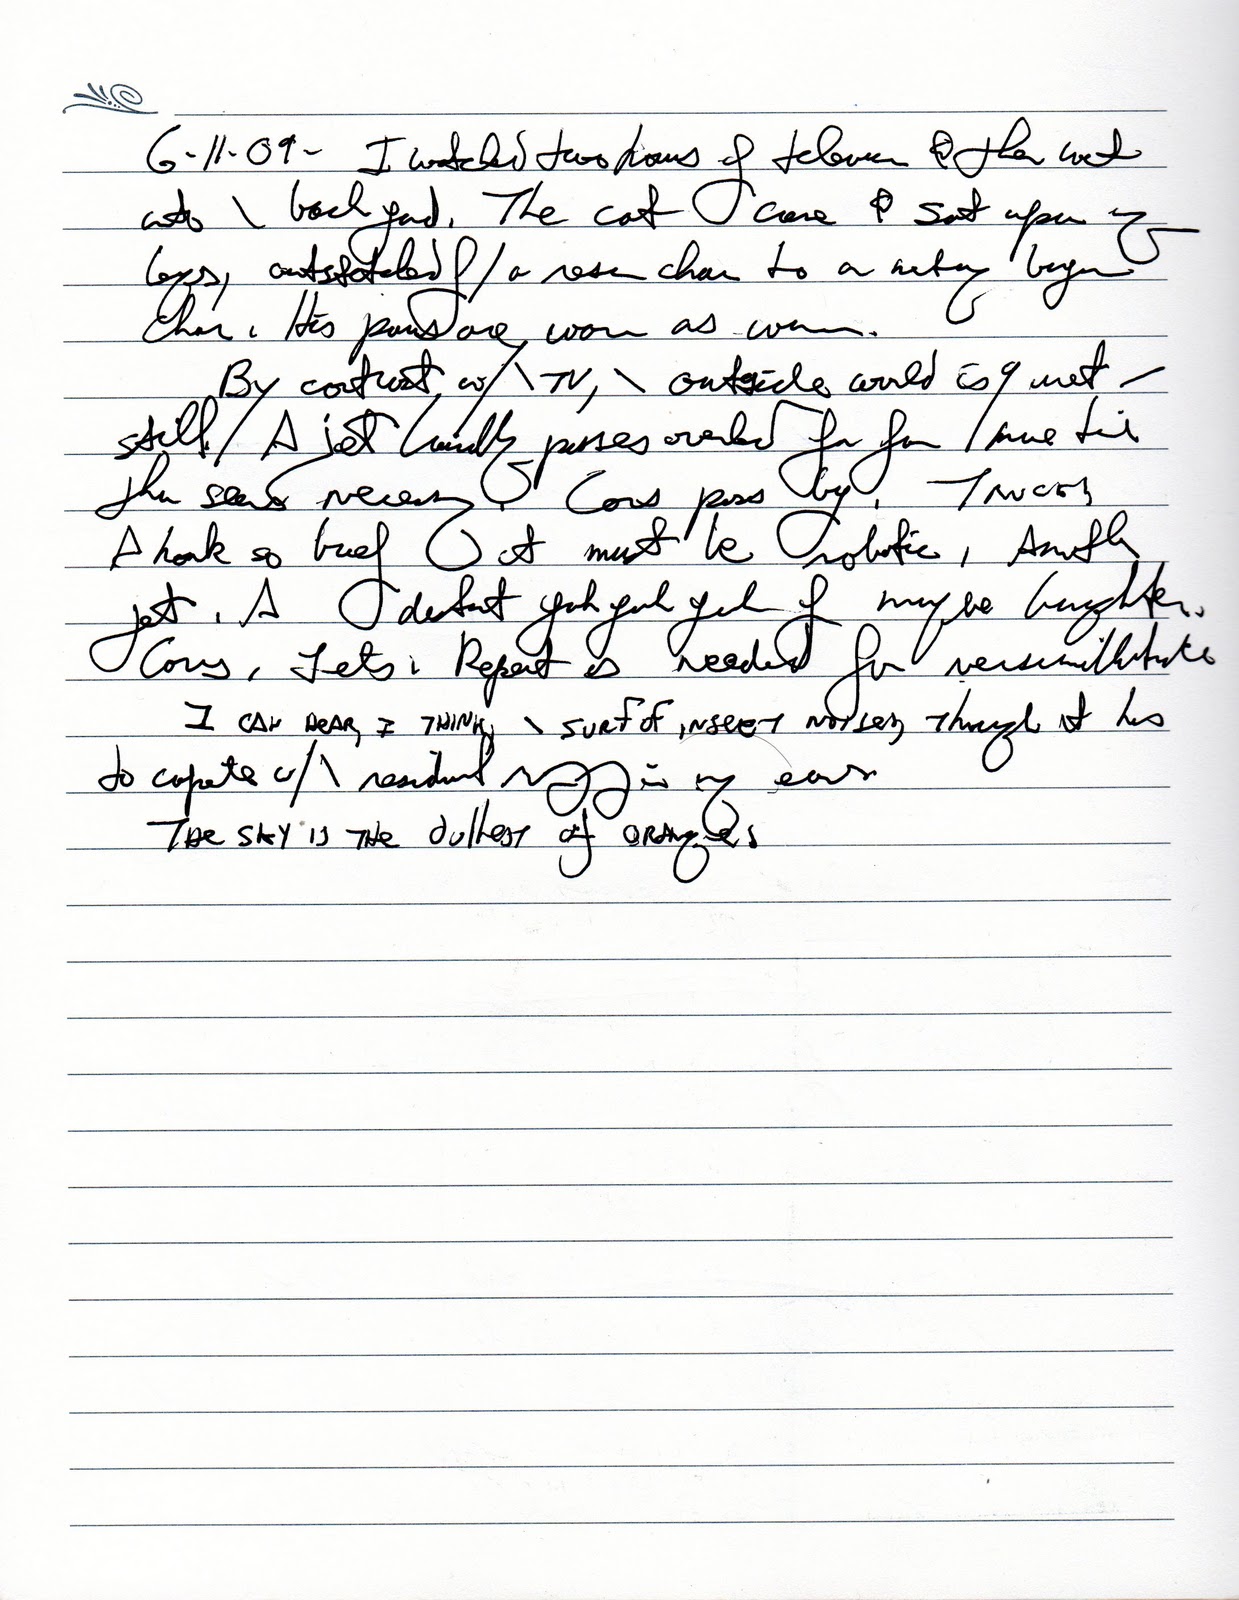 6-11-09- I watched two hours of television & then went
into \ back yard. The cat came & sat upon my
legs, outstretched f/ a resin chair to a
chair. His paws are worn as
By contrast w/ \ TV, \ outside world is quiet -
still / A jet loudly passes overhead for far more time
than seems necessary. Cars pass by. Trucks,
A honk so brief it must be robotic, Another
jet. A distant yuh yuh yuh of maybe laughter.
Cars, Jets: Repeat as needed for verisimilitude
I CAN HEAR, I THINK, \ SURF OF INSECT NOISES, though it has
to compete w/ \ residual ringing in my ears
THE SKY IS THE dullest of ORANGES